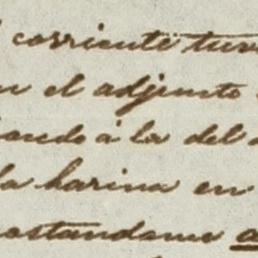 corriente tuv
en el adjunto
ando á la del
la harina en
ostandome a